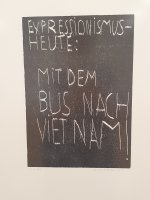 EXPRESSIONISMUS-
HEUTE:
MIT DEM
BUS NACH
VIETNAM!